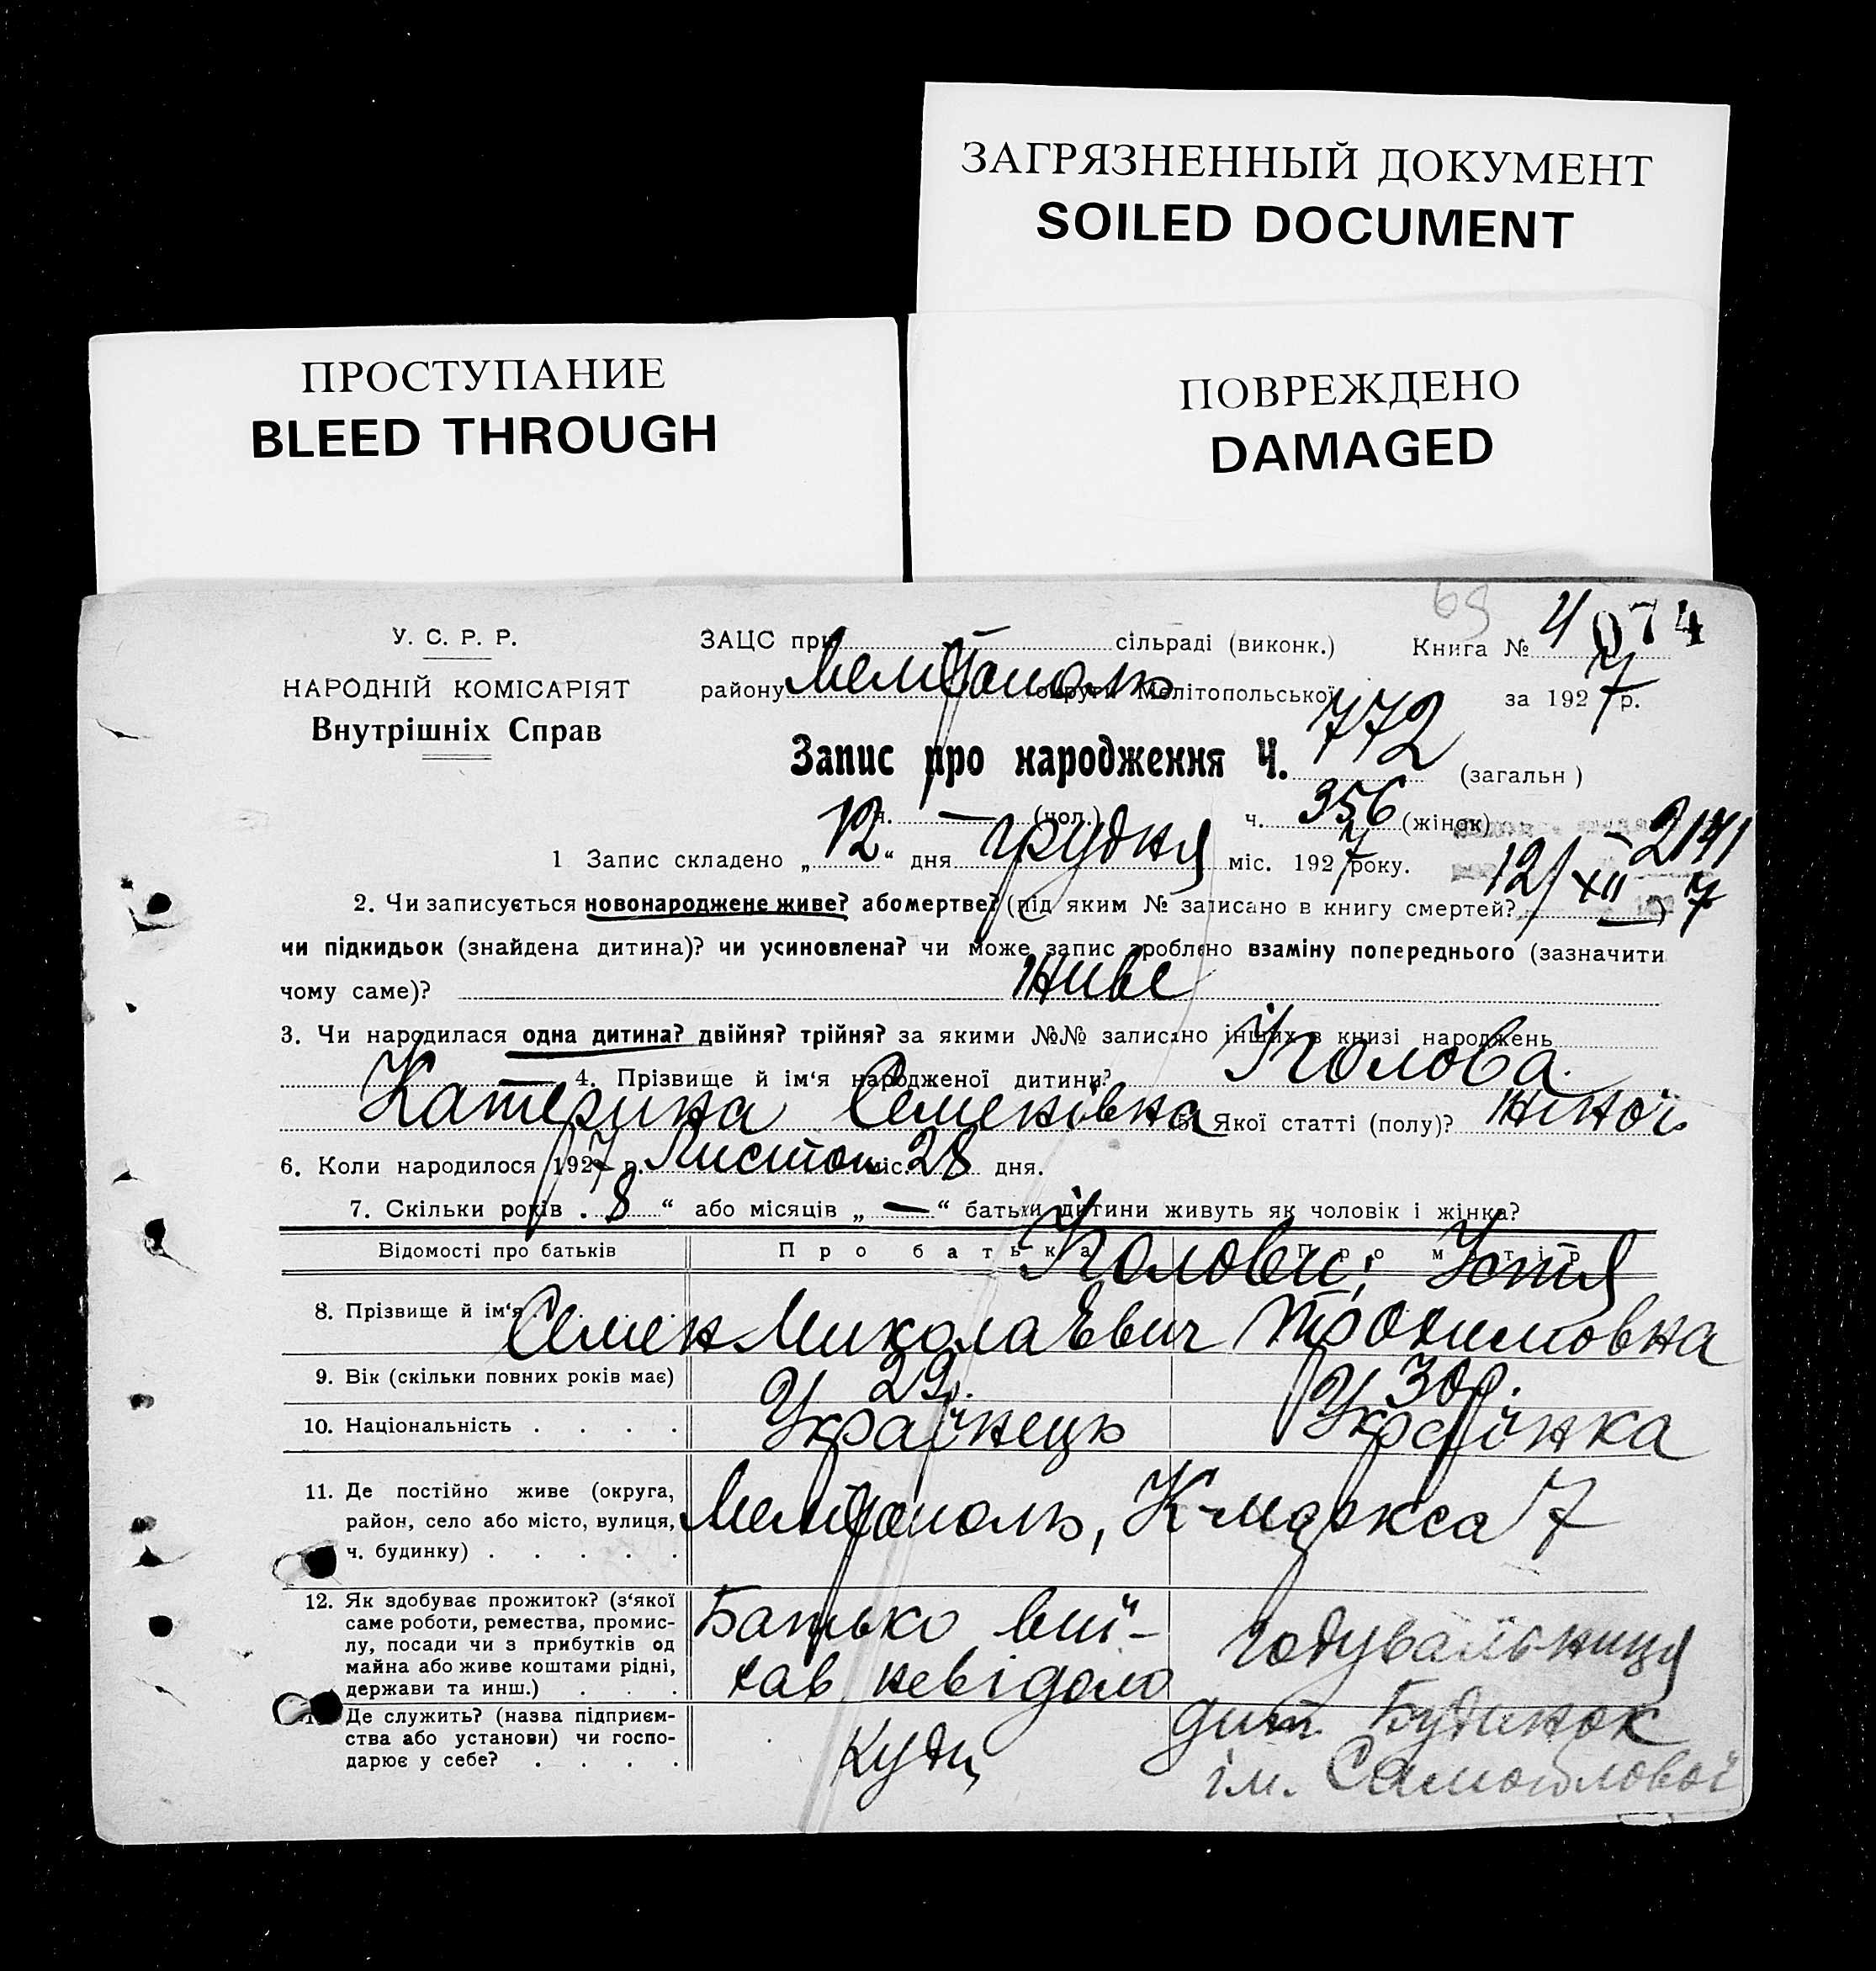 ЗАГРЯЗНЕННЫЙ ДОКУМЕНТ
SOILED DOCUMENT
ПРОСТУПАНИЕ
BLEED THROUGH
ПОВРЕЖДЕНО
DAMAGED
69
У. С. Р. Р.
НАРОДНІЙ КОМІСАРІЯТ
Внутрішніх Справ
ЗАЦС при сільраді (виконк.)
Книга № 4 074
району Мелітополь округи Мелітопольської
за 1927 р.
Запис про народження Ч. 772 (загальн)
ч. — (чол.) ч. 356 (жінок)
1 Запис складено „12“ дня грудня міс. 1927 року.
2141
12/XII 7
2. Чи записується новонароджене живе? або мертве? (під яким № записано в книгу смертей?
чи підкидьок (знайдена дитина)? чи усиновлена? чи може запис зроблено взаміну попереднього (зазначити
чому саме)? живе
3. Чи народилася одна дитина? двійня? трійня? за якими №№ записано інших в книзі народжень
— 4. Прізвище й ім‘я народженої дитини?
Катерина Семенівна 5. Якої статті (полу)? жіноч.
6. Коли народилося 1927 р. Листоп міс. 28 дня.
7. Скільки років „8“ або місяців „—“ батьки дитини живуть як чоловік і жінка?
Відомості про батьків Про батька Про матір
8. Прізвище й ім‘я Семен Миколаевич Устя Трохимовна
9. Вік (скільки повних років має) 29 р. 30 р.
10. Національність . . . . Українець Українка
11. Де постійно живе (округа,
район, село або місто, вулиця,
ч. будинку) . . . . .
Мелітополь, К-Маркса 7
12. Як здобуває прожиток? (з‘якої
саме роботи, ремества, промис-
лу, посади чи з прибутків од
майна або живе коштами рідні,
держави та инш.) . . .
Батько виї-
хав невідомо
куди
Годувальниця
Де служить? (назва підприєм-
ства або установи) чи госпо-
дарює у себе? . . . .
дит. Будинок
ім. Самойлової